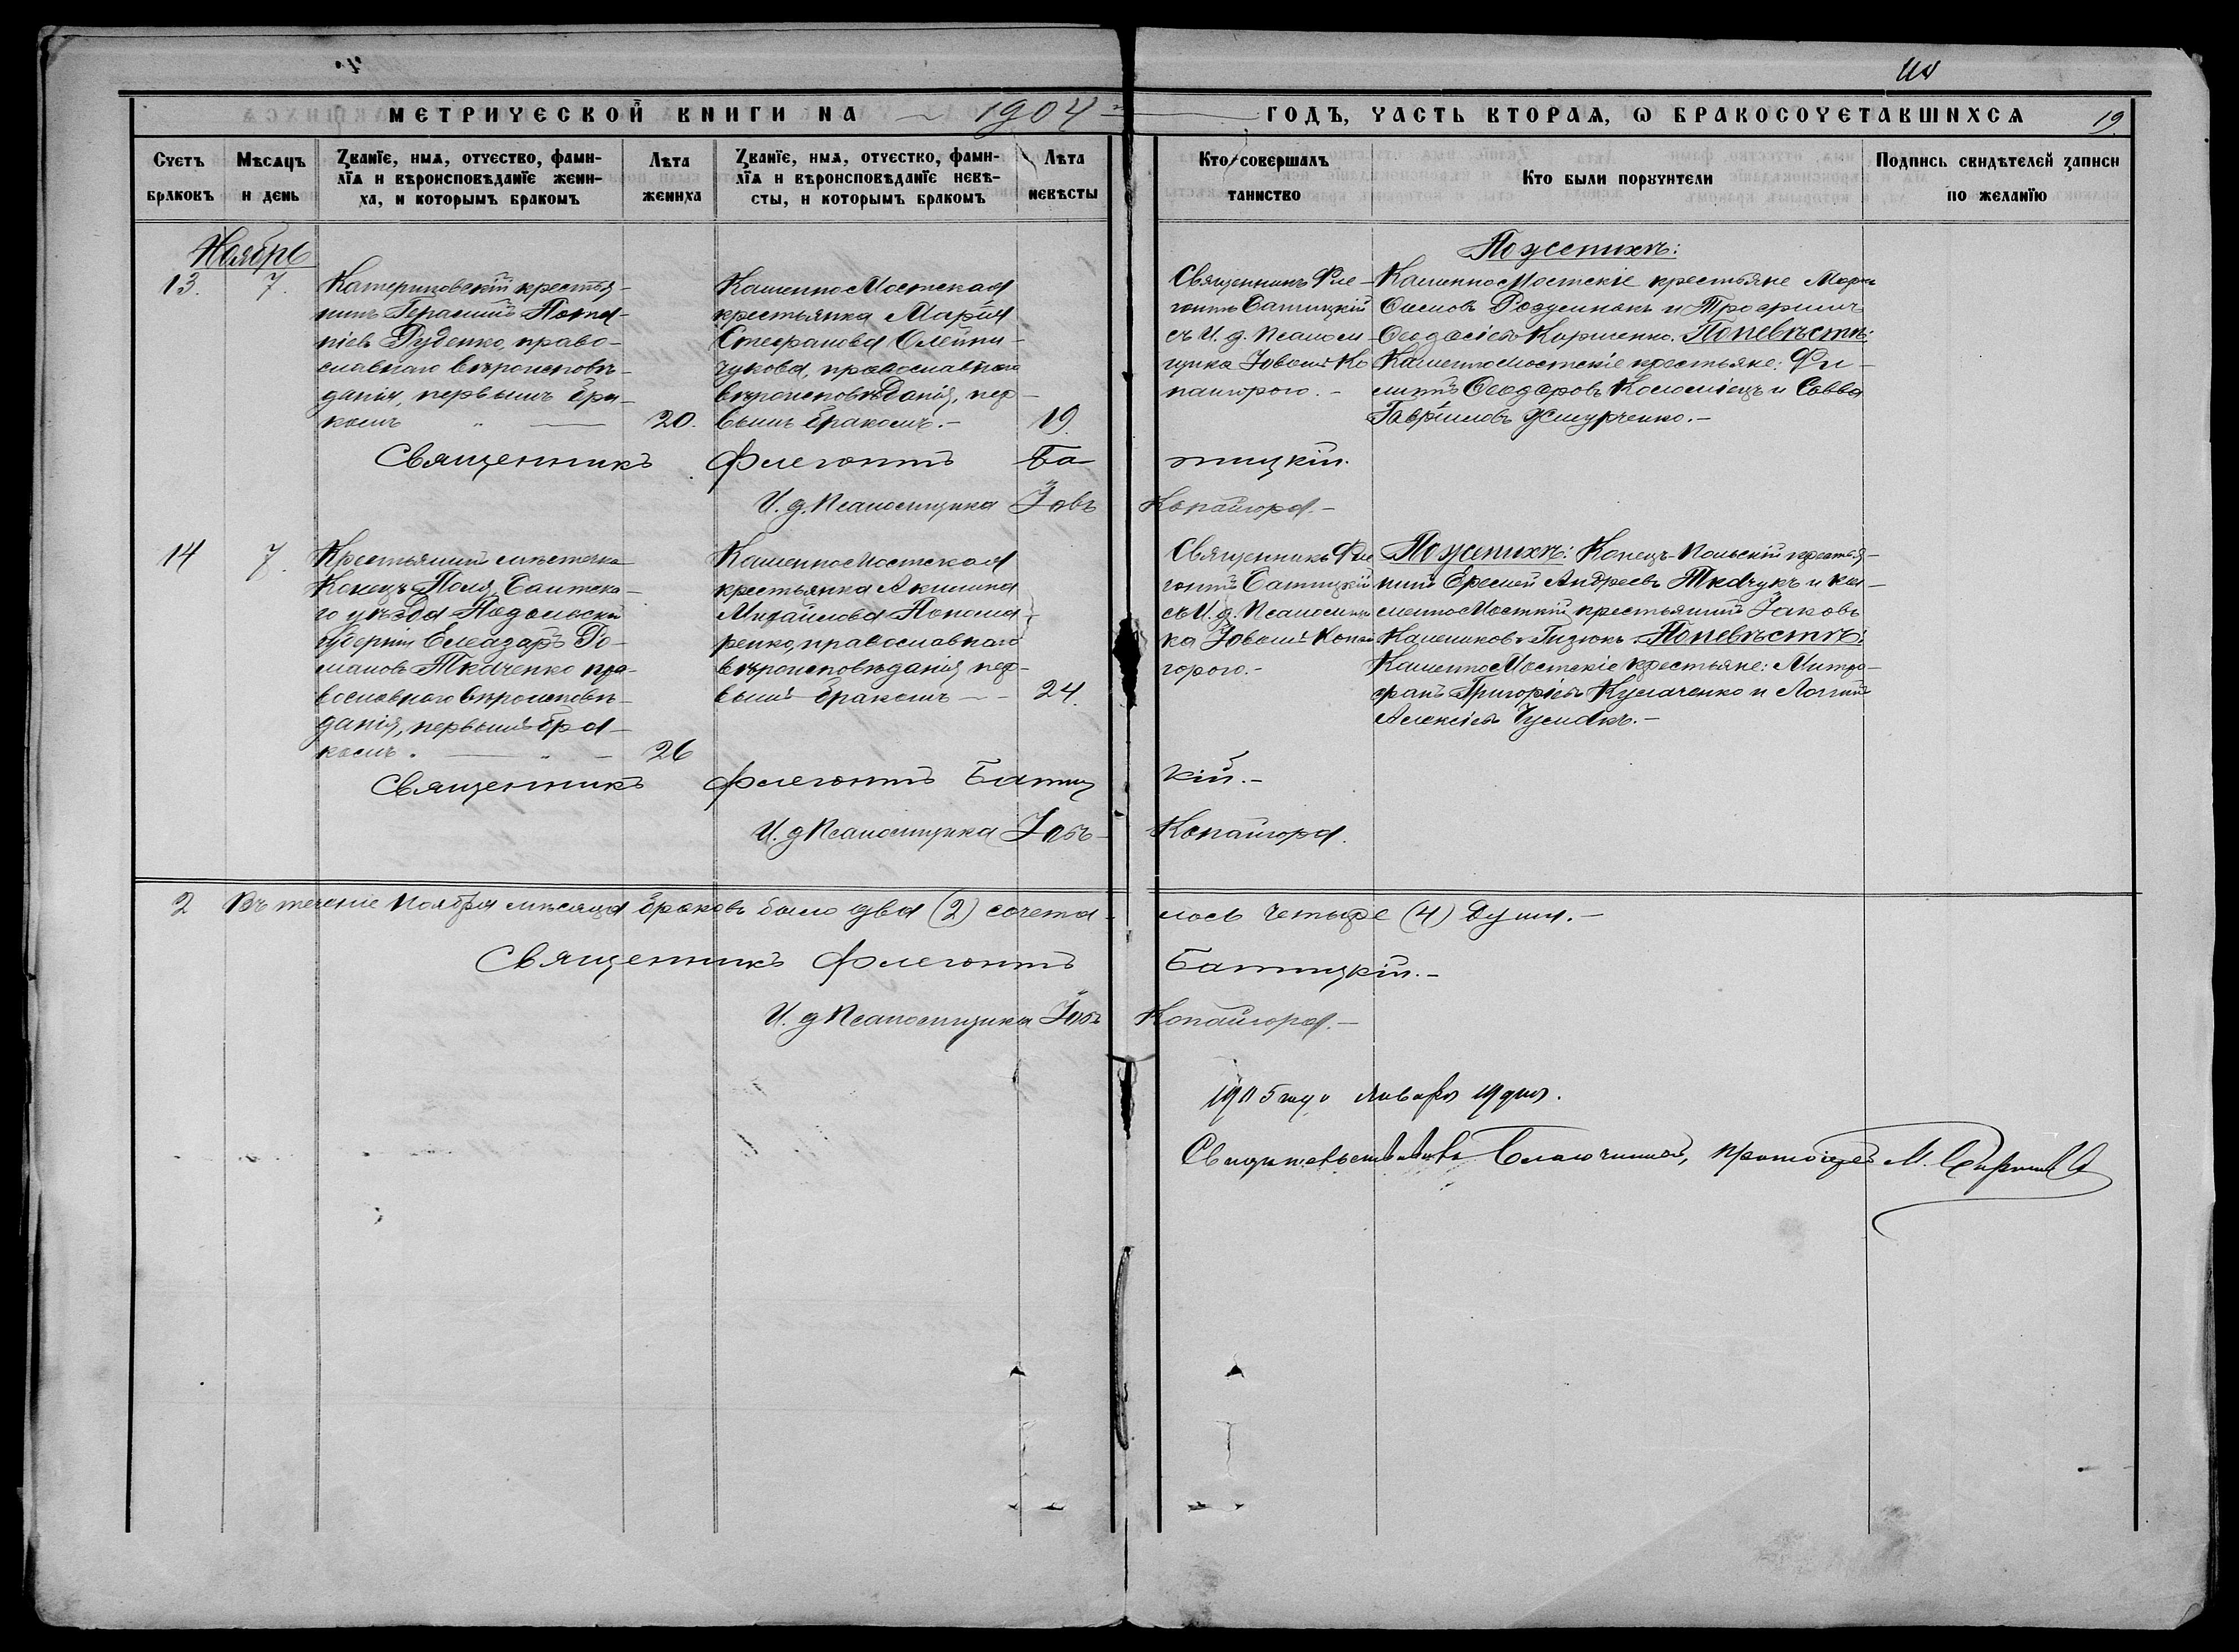 МЕТРИЧЕСКОЙ КНИГИ НА 1904 ГОДЪ, ЧАСТЬ ВТОРАЯ, Ѡ БРАКОСОЧЕТАВШИХСЯ 19
Счетъ браковъ
Мѣсяцъ и день
Званїе, имя, отчество, фами-
лїя и вѣроисповѣданїе жени-
ха, и которымъ бракомъ
Лѣта жениха
Званїе, имя, отчество, фами-
лїя и вѣроисповѣданїе невѣ-
сты, и которымъ бракомъ
Лѣта невѣсты
Кто совершалъ
таинство
Кто были порꙋчители
Подпись свидѣтелей записи
по желанїю
Ноябрь
13. 7.
Катериновскій крестья-
нинъ Герасимъ
Руденко, право-
славнаго вѣроисповѣ-
данія, первымъ бра-
комъ 20.
КаменноМостская
крестьянка Марія
Стефанова Олейни-
чукова, православнаго
вѣроисповѣданія, пер-
вымъ бракомъ.- 19.
Священникъ Фле-
гонтъ Батицкій
съ И. д. Псаломщ-
ика Іовомъ Ко
пайгорою.-
По женихѣ:
КаменноМостскіе крестьяне
и Трофимъ
Ѳеодосіевъ Кориенко. По невѣстѣ:
КаменноМостскіе крестьяне: Фи-
липпъ Ѳеодоровъ Коломіецъ и Савва
Гавріиловъ Жмурченко.-
Священникъ Флегонтъ Ба тицкій.
И. д. Псаломщика Іовъ Копайгора.-
14 7.
Крестьянинъ мѣстечка
Конецъ-Поля, Балтска-
го уѣзда Подольской
губерніи Елеазаръ Ро-
мановъ Ткаченко пра-
вославнаго вѣроисповѣ-
данія, первымъ бра-
комъ. 26
КаменноМостская
крестьянка Акилина
Михайлова Понома-
ренко, православнаго
вѣроисповѣданія, пер-
вымъ бракомъ - 24.
Священникъ Фле
гонтъ Батицкій
съ И. д. Псаломщи
ка Іовомъ Копай
горою.-
По женихѣ: Конецъ-Польскій крестья-
нинъ Еремей Андреевъ Ткачукъ и Ка-
менноМостскій крестьянинъ Іаковъ
Гизюкъ. По невѣстѣ:
КаменноМостскіе крестьяне: Митро-
фанъ Григоріевъ Кулаченко и Логгинъ
Алексіевъ Чумакъ.-
Священникъ Флегонтъ Батиц кій.-
И. д Псаломщика Іовъ Копайгора.
2 Въ теченіе Ноября мѣсяца браковъ было два (2) сочета- лось четыре (4) души.-
Священникъ Флегонтъ Батицкій.-
И. д Псаломщика Іовъ Копайгора.-
1905 года Января 19 дня.
Свидѣтельствовалъ Благочинный, протоіерей М.